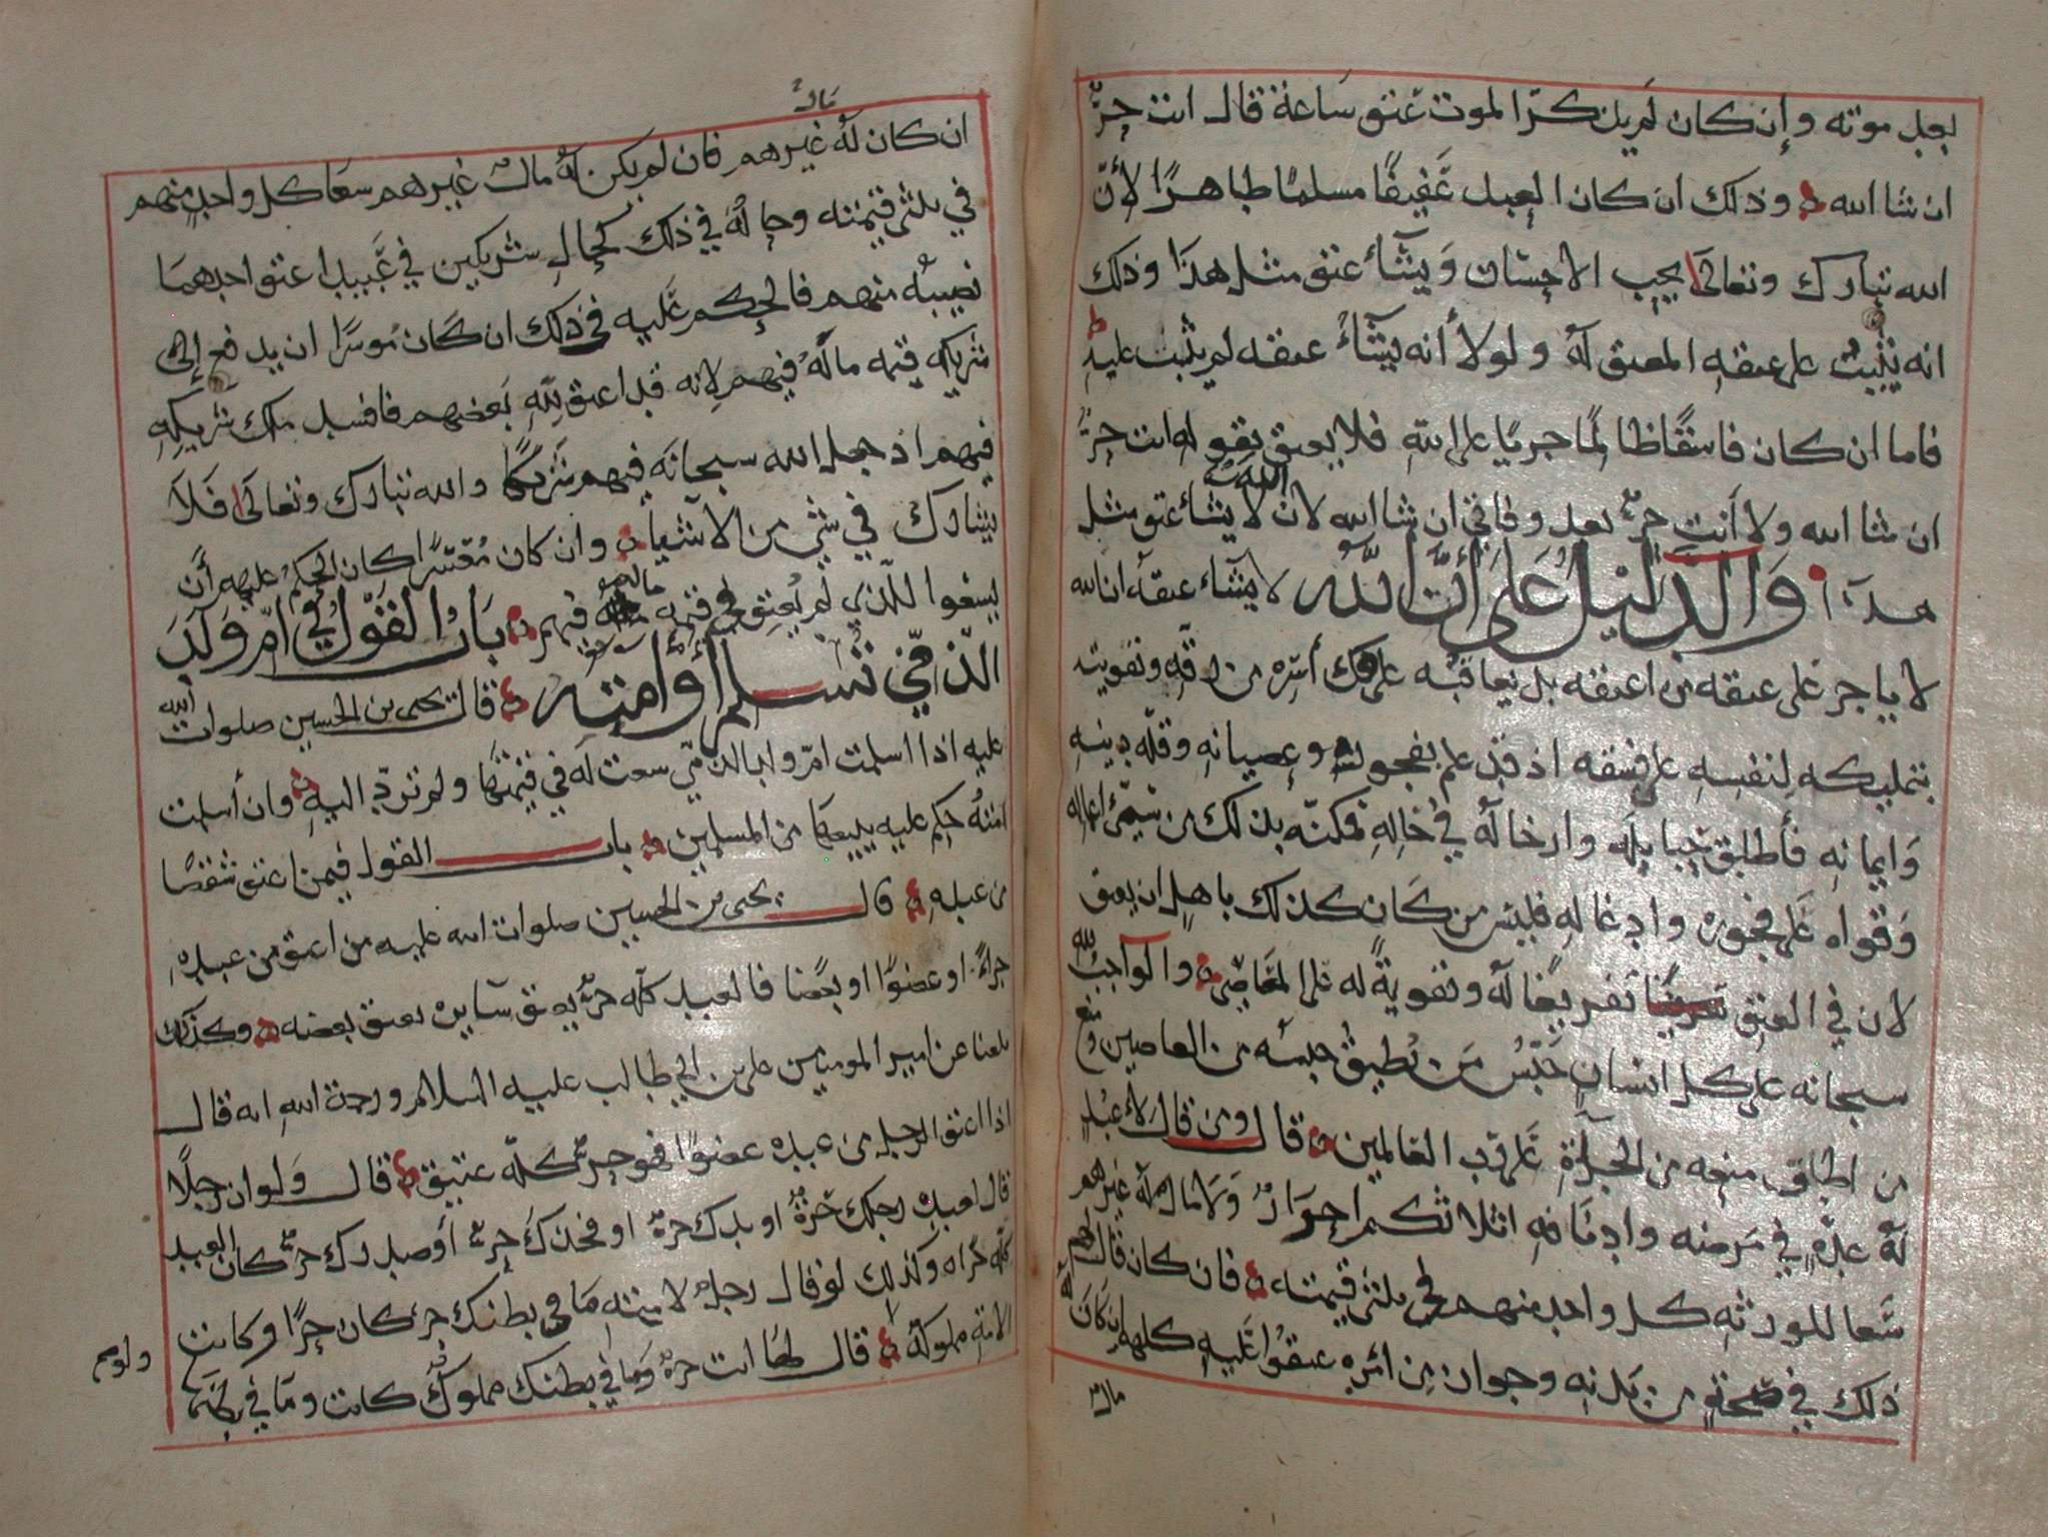 بعد موته وإن كان لم يذكر الموت عتق ساعة قال انت حرٌّ
ان شا الله وذلك ان كان العبد عفيفًا مسلمًا طاهرًا لأنّ
الله تبارك وتعالى يحب الاحسان ويشآء عتق مثل هذا وذلك
انه يثيب على عتقه المعتق له ولولا أنه يشآءُ عتقه لم يثب عليه
فاما ان كان فاسقًا ظالمًا جريًا على الله فلا يعتق بقوله انت حرٌّ
ان شا الله ولا أنت حرٌّ بعد وفاتي ان شا الله لان الله لا يشاء عتق مثل
هذا والدليل على أنّ اللّه لا يشآء عتقه ان الله
لا ياجر على عتقه من اعتقه بل يعاقبه على فك أسره من رقه وتقويته
بتمليكه لنفسه على فسقه اذ قد علم بفجوره وعصيانه وقلة دينه
وايمانه فأطلق حباله وارخا له في حاله فمكنّه بذلك من سيّئ اعماله
وقواه على فجوره وادغاله فليس من كان كذلك باهلٍ ان يعتق
لان في العتق تفريغًا له وتقويةً له على المعاصي والواجب لله
سبحانه على كل انسانٍ حبس من يطيق حبسه من العاصين ومنع
من اطاق منعه من الجرأة على رب العالمين قال ومن قال لأعبد
له عدّةٍ في مرضه وادنافه اثلاثكم احرارٌ ولا مال له غيرهم
سعا للورثه كل واحد منهم في ثلثي قيمته فان كان قال لهم
ذلك في صحة من بدنه وجواز من امره عتقوا عليه كلهم إن كان له
مال
مالٌ
ان كان له غيرهم فان لم يكن له مالٌ غيرهم سعا كل واحد منهم
في ثلثي قيمته وحاله في ذلك كحال شريكين في عبيد اعتق احدهما
نصيبه منهم فالحكم عليه في ذلك ان كان موسرًا ان يدفع إلى
شريكه قيمه ماله فيهم لانه قد اعتق لله بعضهم فافسد ملك شريكه
فيهم اذ جعل الله سبحانه فيهم شريكًا والله تبارك وتعالى فلا
يشارك في شي من الاشيا وان كان معسرًا كان الحكم عليهم أن
يسعوا للذي لم يعتق في قيمة ماله فيهم باب القول في امّ ولد
الذّمّي تسلم أو امته قال يحيى بن الحسين صلوات الله
عليه اذا اسلمت امّ ولد الذمّي سعت له في قيمتها ولم تردّ اليه وان أسلمت
امته حكم عليه ببيعها من المسلمين باب القول فيمن اعتق شقصًا
من عبده قال يحيى بن الحسين صلوات الله عليه من اعتق من عبده
جزءًا او عضوًا او بعضا فالعبد كله حرٌّ يعتق سايره بعتق بعضه وكذلك
بلغنا عن امير المومنين علي بن ابي طالب عليه السلام ورحمة الله انه قال
اذا اعتق الرجل من عبده عضوًا فهو حرٌّ كلّه عتيق قال ولو ان رجلًا
قال لعبده رجلك حرةٌ او يدك حرةٌ او فخذك حرٌّ أو صدرك حرٌّ كان العبد
كلّه حرًا وكذلك لو قال رجلٌ لامته ما في بطنك حرٌّ كان حرًّا وكانت
الامه مملوكةً قال لها انت حرةٌ وما في بطنك مملوك كانت وما في بطنها
ولوم